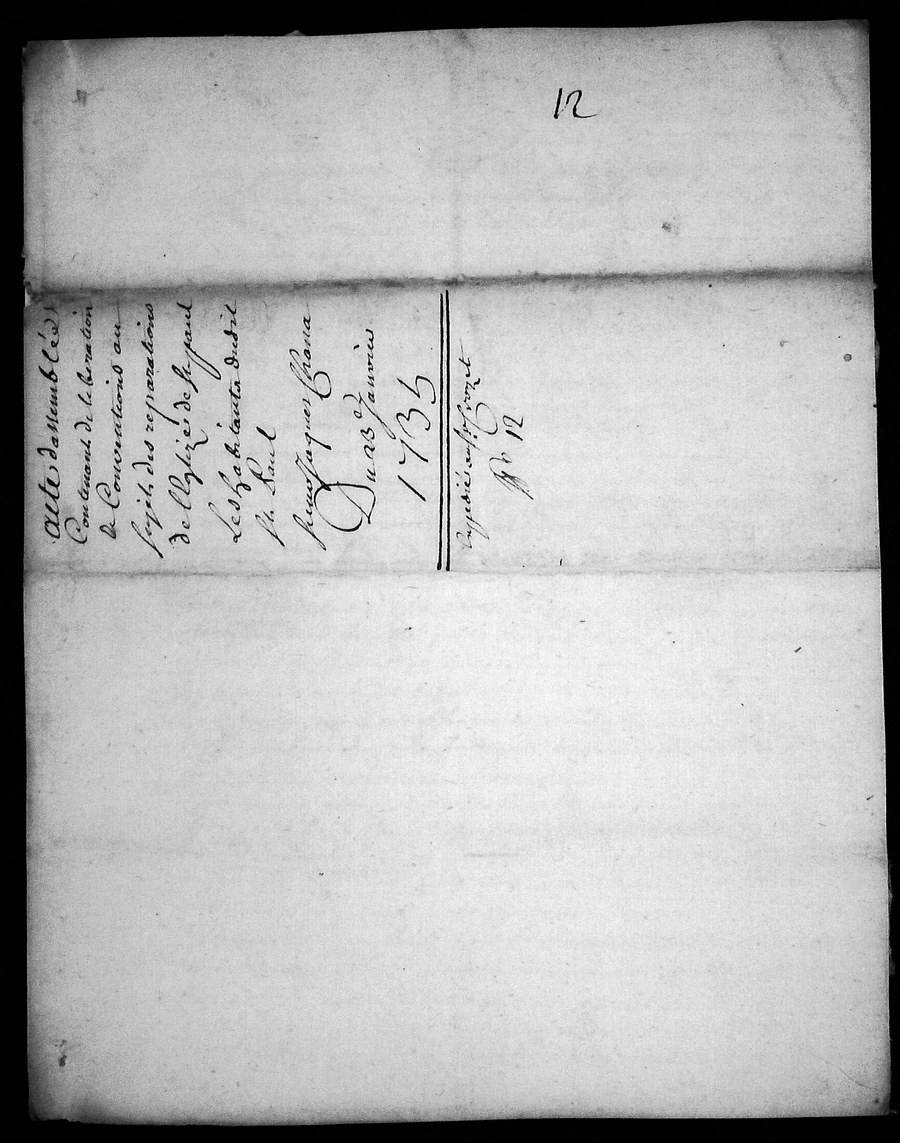 12
acte dassemblée
Contenant deliberation
de Conventions au
sujet des reparations
de l'Eglize de st paul
Les habitants dudit
st. Paul
sieur Jacques
Du 23e Janvier
1735
Expedié au sr Crozet
No 12